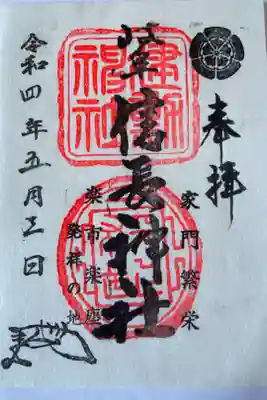 奉拝
家門繁栄
岐阜信長神社
建勲
神社
楽市楽座
発祥の地
令和四年五月三日